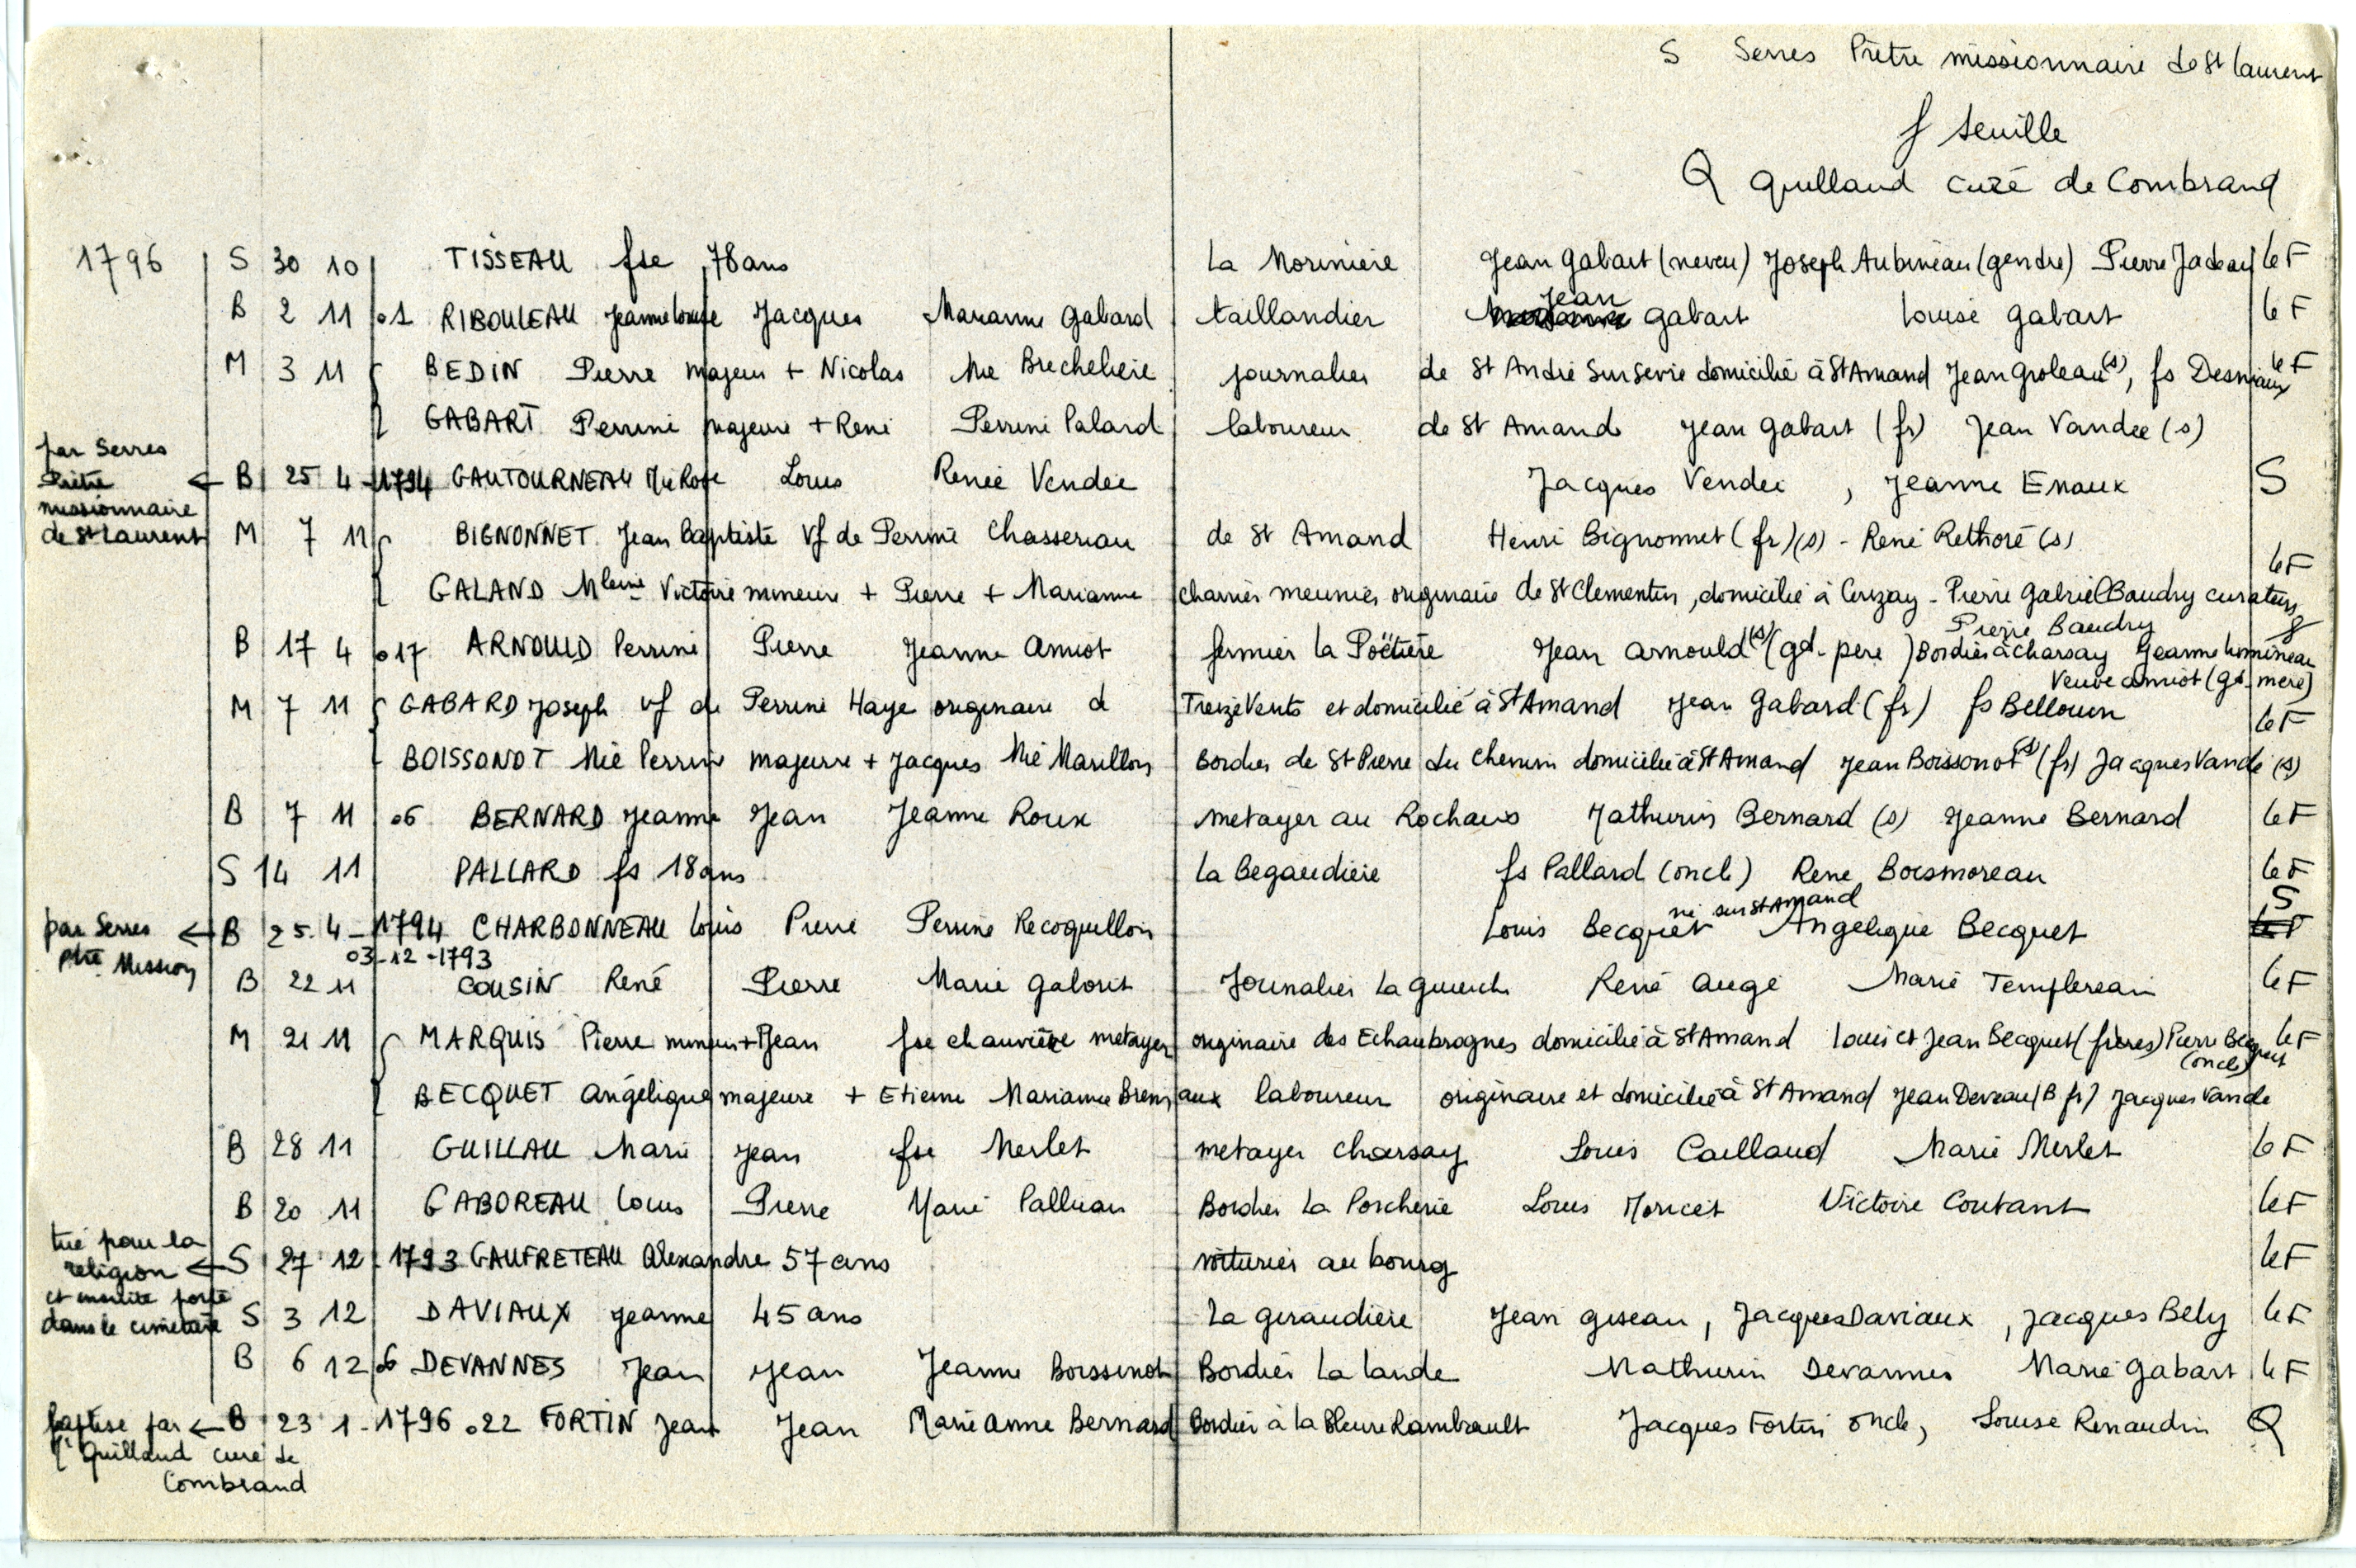 S Serres Prêtre missionnaire de St Laurent
f Seuille
Q Guilland curé de Combrand
1796 S 30 10 TISSEAU fse 78 ans La Morinière Jean Gabart (neveu) Joseph Aubineau (gendre) Pierre Jadeau le F
B 2 11 o1 RIBOULEAU Jeanne Louise Jacques Marianne Gabard taillandier Jean Gabart Louise Gabart le F
M 3 11 BEDIN Pierre majeur + Nicolas Mie Brecheliere journalier de St André sur Sevre domicilié à St Amand Jean Groleau (s), fs Desniaux le F
GABART Perrine majeure + René Perrine Palard laboureur de St Amand Jean Gabart (fr) Jean Vandee (s)
par Serres Prêtre missionnaire de St Laurent ← B 25 4 - 1794 GAUTOURNEAU Mie Rose Louis Renée Vendée Jacques Vendee, Jeanne Enaux S
M 7 11 BIGNONNET Jean Baptiste Vf de Perrine Chasseriau de St Amand Henri Bignonnet (fr) (s) - René Rethoré (s)
le F
GALAND Mleine Victoire mineure + Pierre + Marianne charrier meunier originaire de St Clementin, domicilié à Cerizay - Pierre Gabriel Baudry curateur
Pierre Baudry
B 17 4 o17 ARNOULD Perrine Pierre Jeanne Amiot fermier la Poëtière Jean Arnould (s) (gd. père) Bordier à Charsay Jeanne Lomineau
Veuve Amiot (gd. mère)
M 7 11 GABARD Joseph vf de Perrine Haye originaire de Treize Vents et domicilié à St Amand Jean Gabard (fr) fs Bellouin le F
BOISSONOT Mie Perrine majeure + Jacques Mie Marillon Bordier de St Pierre du Chemin domiciliée à St Amand Jean Boissonot (s) (fr) Jacques Vandé (s)
B 7 11 o6 BERNARD Jeanne Jean Jeanne Roux metayer au Rochais Mathurin Bernard (s) Jeanne Bernard le F
S 14 11 PALLARD fs 18 ans La Begaudiere fs Pallard (oncle) René Boismoreau le F
par Serres ptre Mission ← B 25.4 - 1794 CHARBONNEAU Louis Pierre Perrine Recoquillon Louis Becquet Angelique Becquet S
né sur St Amand
03-12-1793
B 22 11 COUSIN René Pierre Marie Gaborit Journalier La Guierche René Augé Marie Templereau le F
M 21 11 MARQUIS Pierre mineur + Jean fse Chauvière metayer originaire des Echaubrognes domicilié à St Amand Louis et Jean Becquet (frères) Pierre Becquet (oncle) le F
BECQUET Angélique majeure + Etienne Marianne Bremaux laboureur originaire et domiciliée à St Amand Jean Deveau (B fr) Jacques Vandé
B 28 11 GUILLAU Marie Jean fse Merlet metayer Charsay Louis Caillaud Marie Merlet le F
B 20 11 GABOREAU Louis Pierre Marie Palluau Bordier La Porcherie Louis Moricet Victoire Coutant le F
tué pour la religion et ensuite porté dans le cimetière ← S 27 12 1793 GAUFRETEAU Alexandre 57 ans voiturier au bourg le F
S 3 12 DAVIAUX Jeanne 45 ans La Giraudière Jean Giseau, Jacques Daviaux, Jacques Bely le F
B 6 12 o6 DEVANNES Jean Jean Jeanne Boissinot Bordier La Lande Mathurin Devannes Marie Gabart le F
baptisé par Guilland curé de Combrand ← B 23 1 - 1796 o22 FORTIN Jean Jean Marie Anne Bernard Bordier à la Rambault Jacques Fortin oncle, Louise Renaudin Q